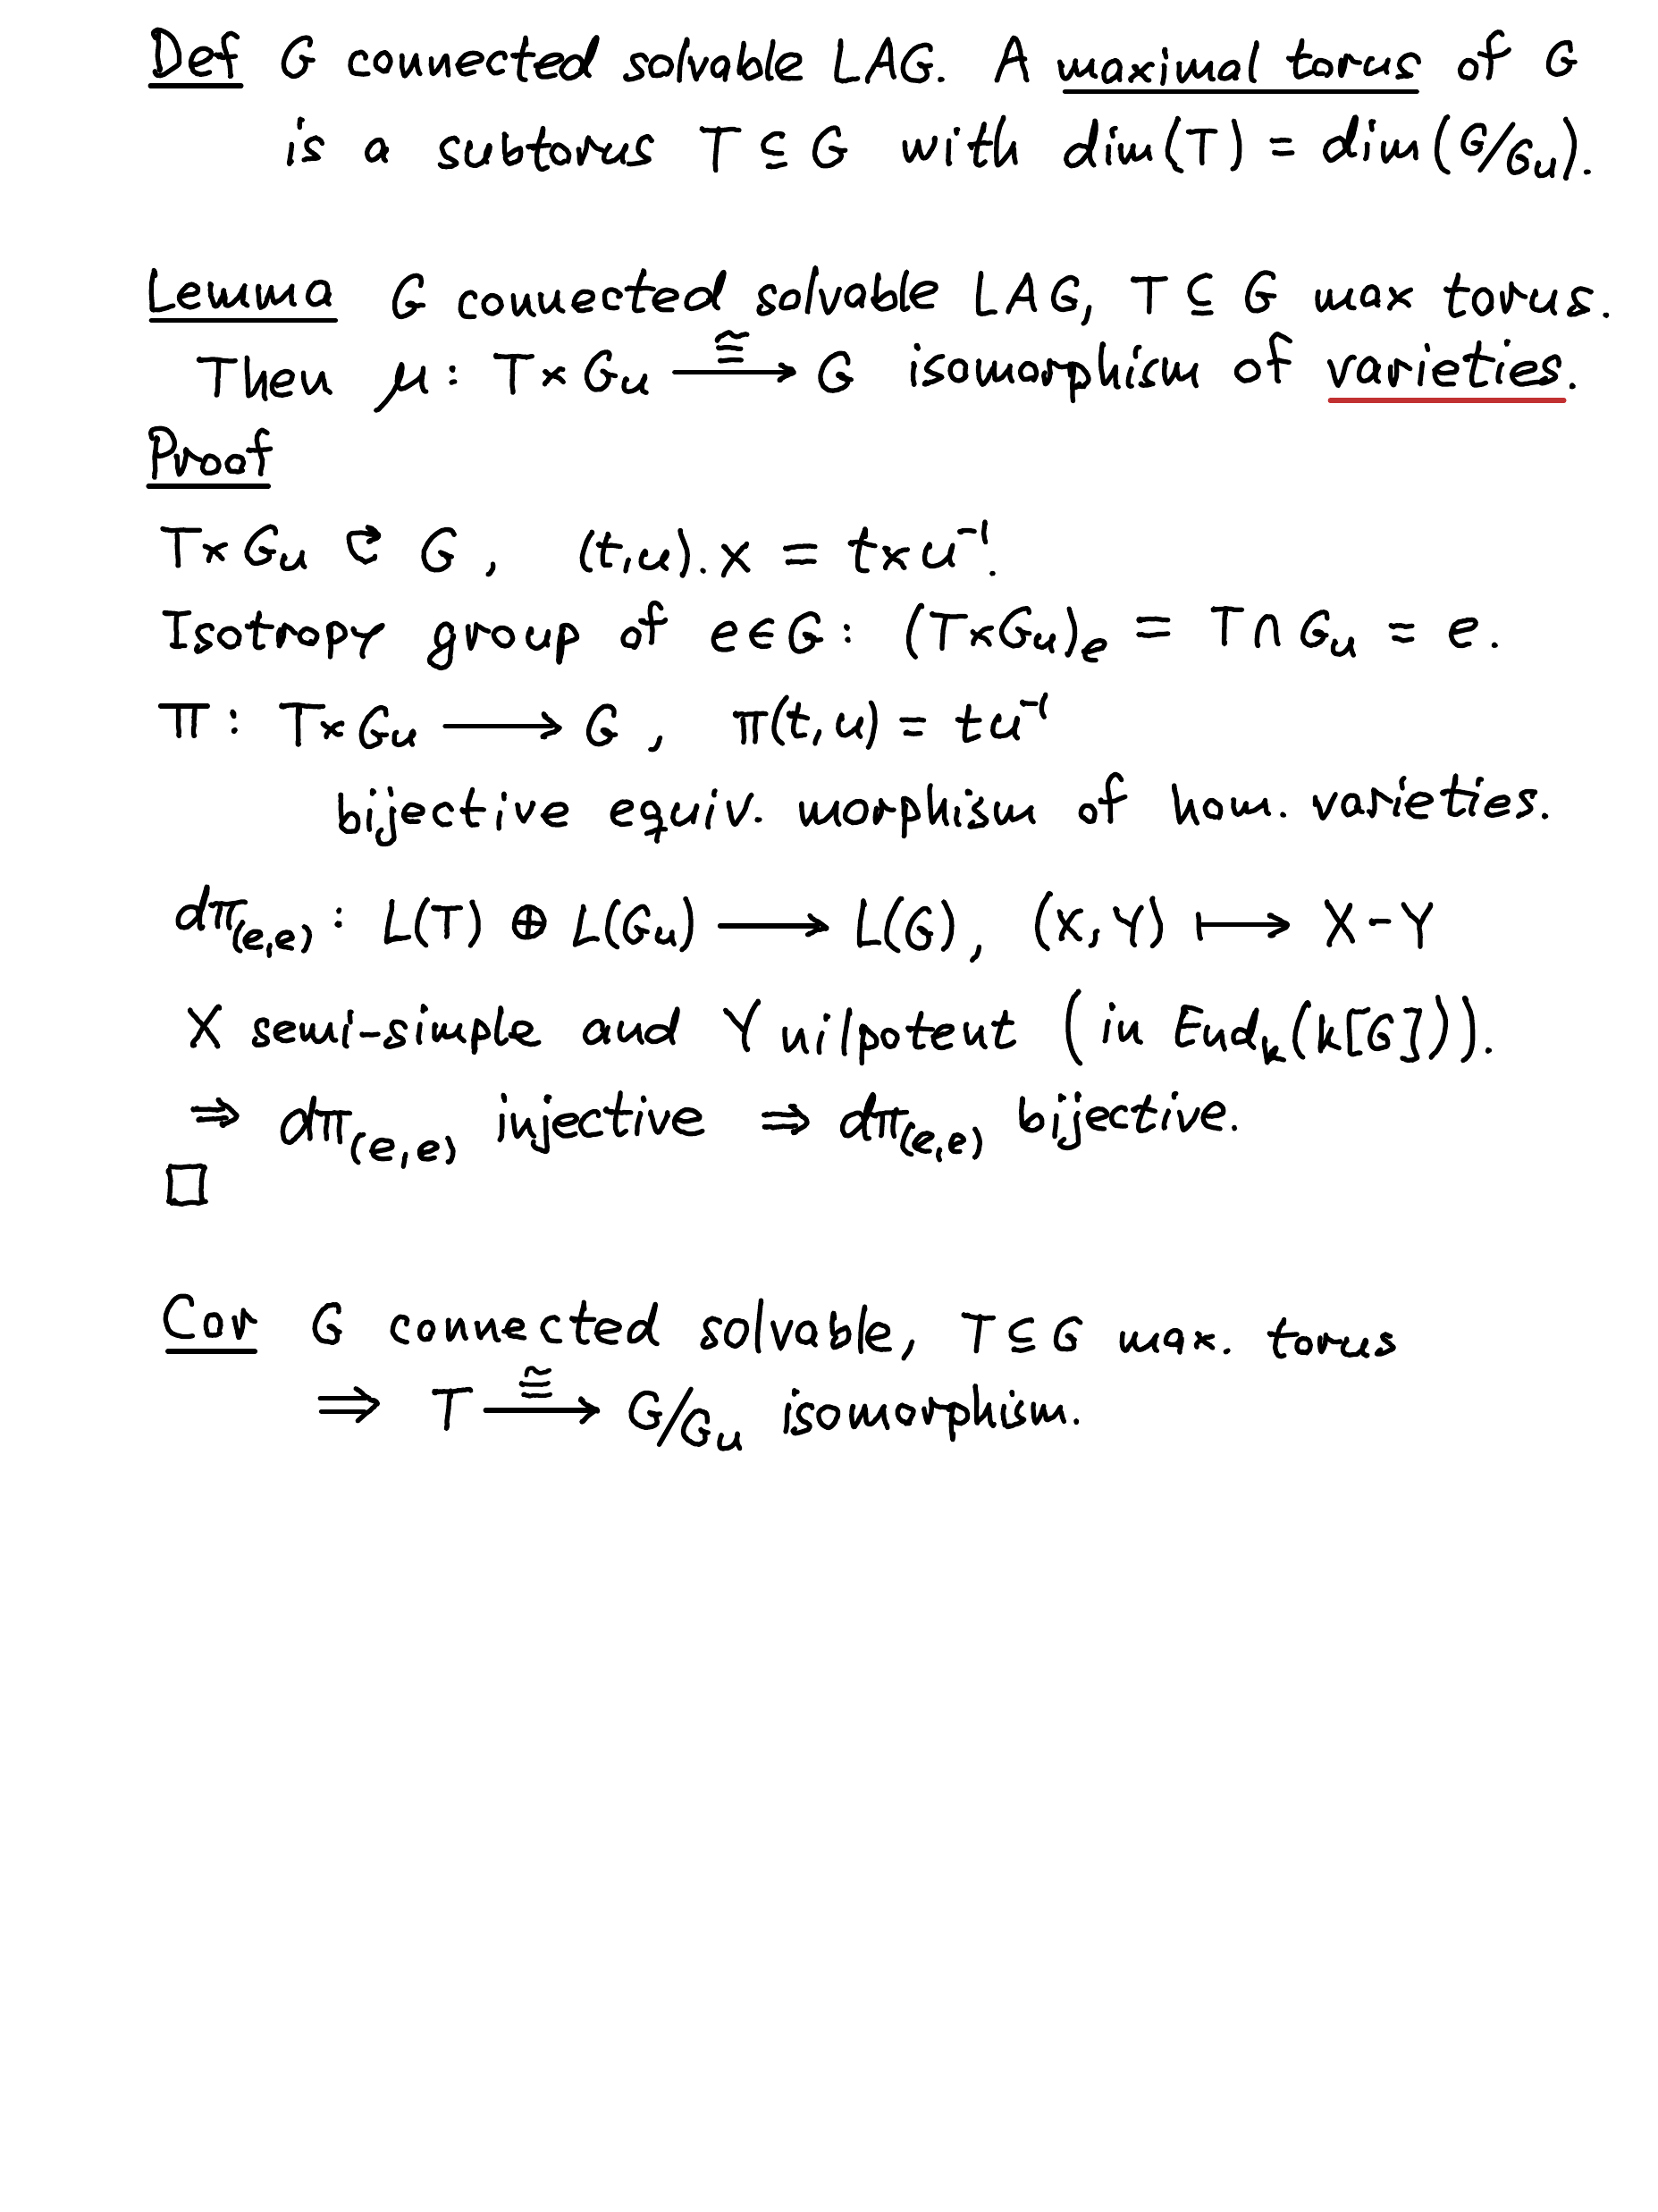 Def G connected solvable LAG. A maximal torus of G
is a subtorus T ⊆ G with dim(T) = dim(G/Gᵤ).
Lemma G connected solvable LAG, T ⊆ G max torus.
Then μ: T×Gᵤ ⟶≅ G isomorphism of varieties.
Proof
T×Gᵤ ⟳ G, (t,u).x = txu⁻¹.
Isotropy group of e∈G: (T×Gᵤ)ₑ = T∩Gᵤ = e.
π: T×Gᵤ ⟶ G, π(t,u) = tu⁻¹
bijective equiv. morphism of hom. varieties.
dπ₍ₑ,ₑ₎: L(T) ⊕ L(Gᵤ) ⟶ L(G), (X,Y) ⟼ X-Y
X semi-simple and Y nilpotent (in Endₖ(k[G])).
⇒ dπ₍ₑ,ₑ₎ injective ⇒ dπ₍ₑ,ₑ₎ bijective.
□
Cor G connected solvable, T⊆G max. torus
⇒ T ⟶≅ G/Gᵤ isomorphism.